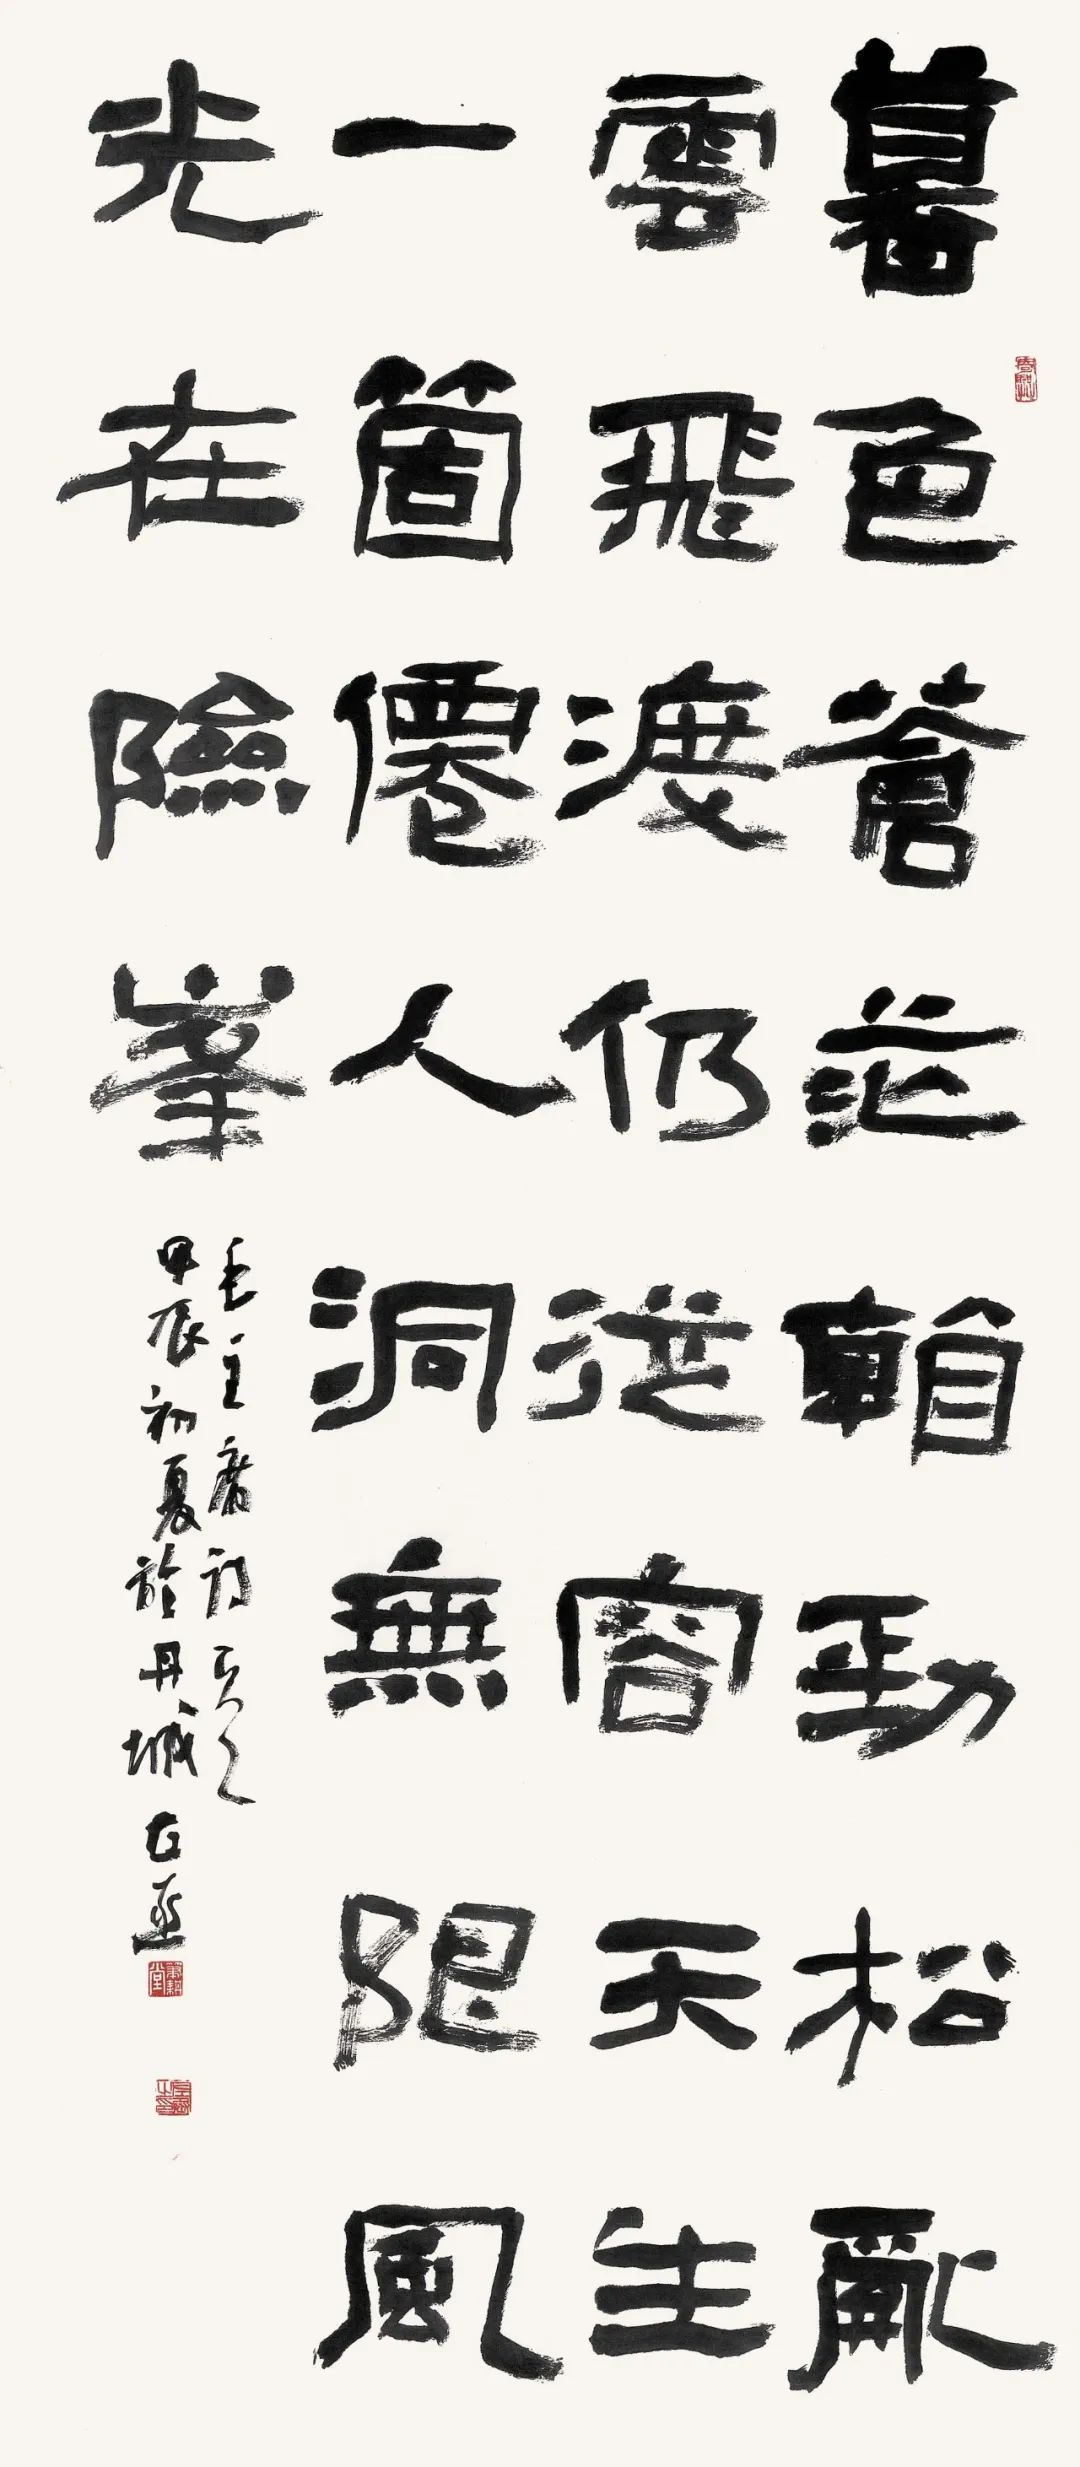 暮色蒼茫看勁松亂
雲飛渡仍從容天生
一箇僊人洞無限風
光在險峯
毛主席詩
甲辰初夏於丹城